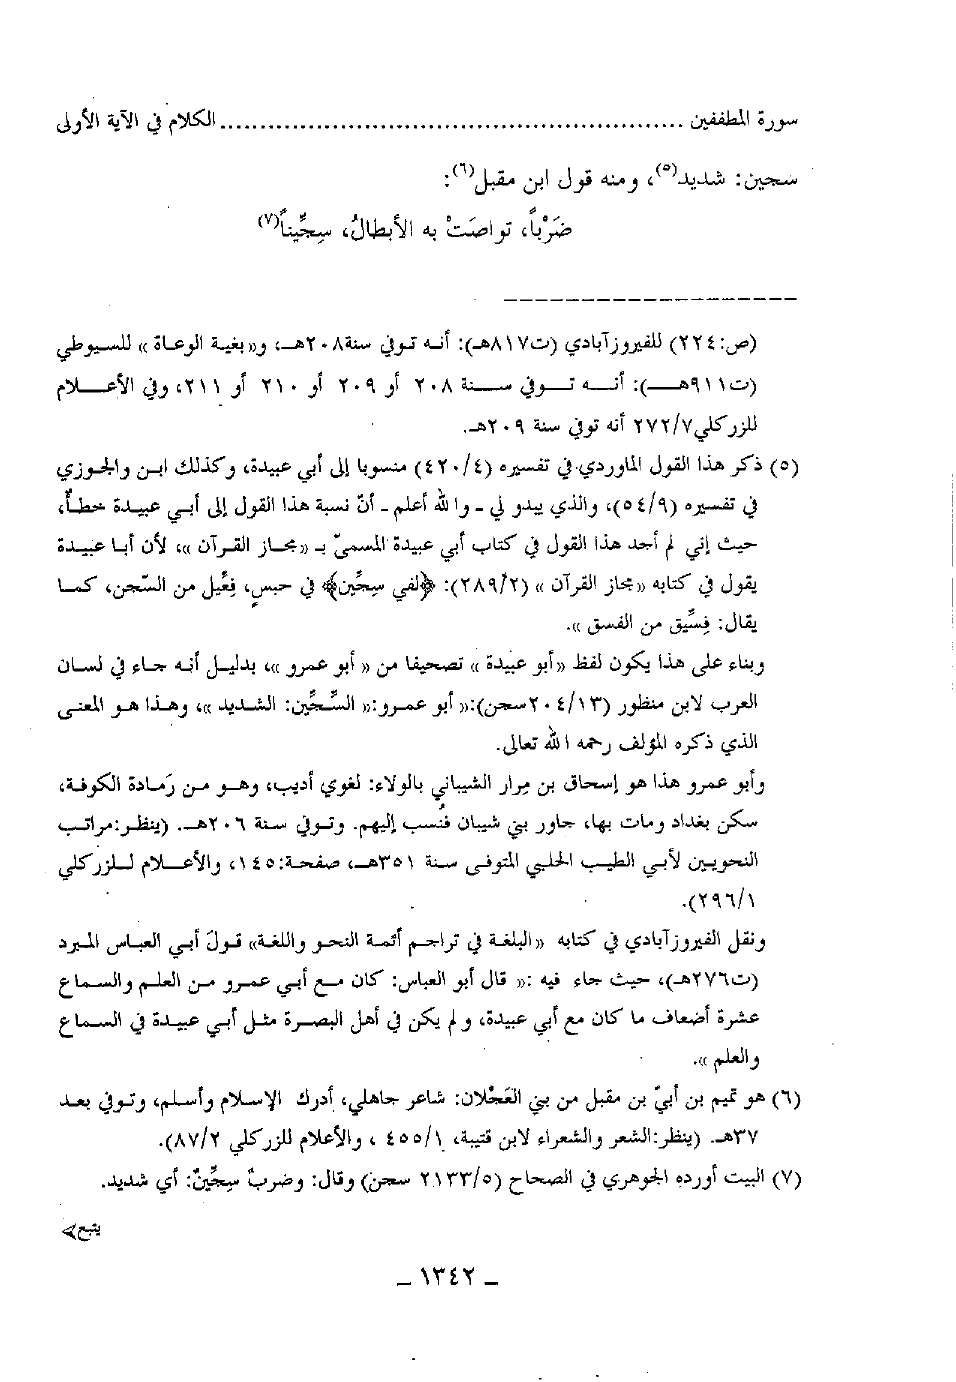 سورة المطففين .......................................................... الكلام في الآية الأولى
سجين: شديد(٥)، ومنه قول ابن مقبل(٦):
ضَرْباً، تواصَتْ به الأبطالُ، سِجِّيناً(٧)
(ص:٢٢٤) للفيروزآبادي (ت٨١٧هـ): أنه توفي سنة٢٠٨هـ، و«بغية الوعاة» للسيوطي
(ت٩١١هـ): أنه توفي سنة ٢٠٨ أو ٢٠٩ أو ٢١٠ أو ٢١١، وفي الأعلام
للزركلي٢٧٢/٧ أنه توفي سنة ٢٠٩هـ.
(٥) ذكر هذا القول الماوردي في تفسيره (٤٢٠/٤) منسوبا إلى أبي عبيدة، وكذلك ابن والجوزي
في تفسيره (٥٤/٩)، والذي يبدو لي - والله أعلم - أنّ نسبة هذا القول إلى أبي عبيدة خطأ،
حيث إني لم أجد هذا القول في كتاب أبي عبيدة المسمىّ بـ «مجاز القرآن»، لأن أبا عبيدة
يقول في كتابه «مجاز القرآن» (٢٨٩/٢): ﴿لفي سِجِّين﴾ في حبس، فِعِّيل من السّجن، كما
يقال: فِسِّيق من الفسق».
وبناء على هذا يكون لفظ «أبو عبيدة» تصحيفا من «أبو عمرو»، بدليل أنه جاء في لسان
العرب لابن منظور (٢٠٤/١٣سجن):«أبو عمرو:«السِّجِّين: الشديد»، وهذا هو المعنى
الذي ذكره المؤلف رحمه الله تعالى.
وأبو عمرو هذا هو إسحاق بن مِرار الشيباني بالولاء: لغوي أديب، وهو من رَمادة الكوفة،
سكن بغداد ومات بها، جاور بني شيبان فنُسب إليهم. وتوفي سنة ٢٠٦هـ. (ينظر:مراتب
النحويين لأبي الطيب الحلبي المتوفى سنة ٣٥١هـ، صفحة:١٤٥، والأعلام للزركلي
٢٩٦/١).
ونقل الفيروزآبادي في كتابه «البلغة في تراجم أئمة النحو واللغة» قولَ أبي العباس المبرد
(ت٢٧٦هـ)، حيث جاء فيه :« قال أبو العباس: كان مع أبي عمرو من العلم والسماع
عشرة أضعاف ما كان مع أبي عبيدة، ولم يكن في أهل البصرة مثل أبي عبيدة في السماع
والعلم».
(٦) هو تميم بن أبيّ بن مقبل من بني العَجْلان: شاعر جاهلي، أدرك الإسلام وأسلم، وتوفي بعد
٣٧هـ. (ينظر:الشعر والشعراء لابن قتيبة، ٤٥٥/١ ، والأعلام للزركلي ٨٧/٢).
(٧) البيت أورده الجوهري في الصحاح (٢١٣٣/٥ سجن) وقال: وضربٌ سِجِّينٌ: أي شديد.
يتبع
- ١٣٤٢ -